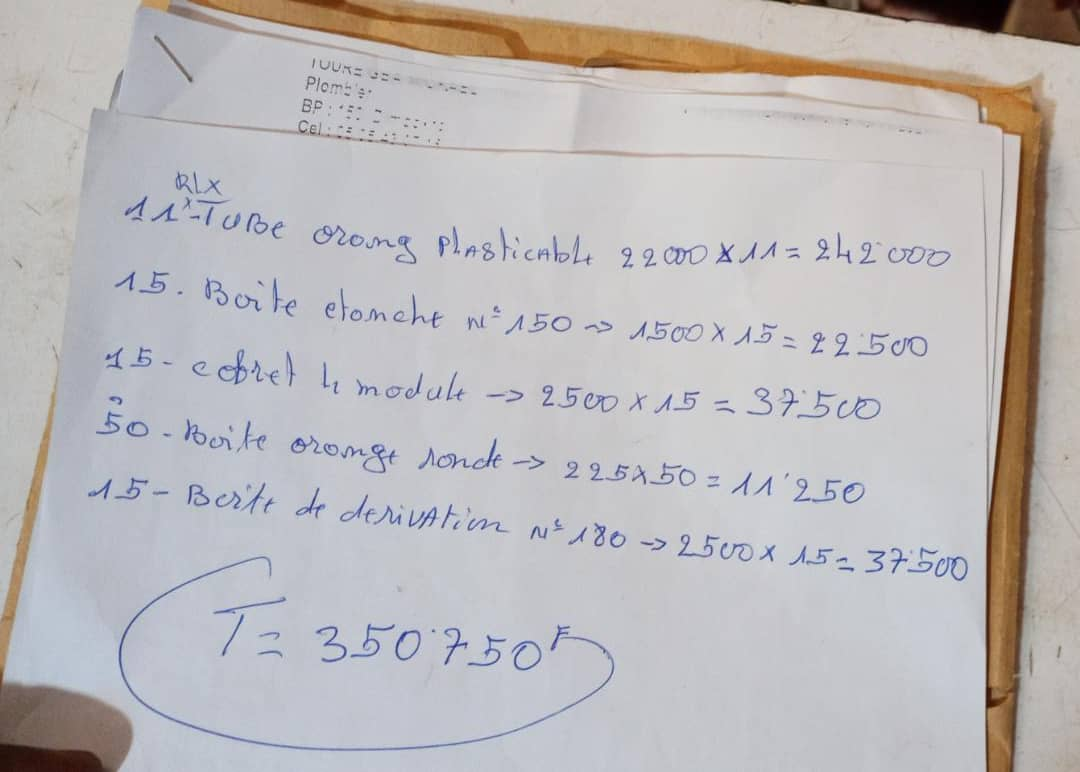 Plombier
BP :
Cel :
RLX
11 - TUBE orang plasticable 22000 x 11 = 242'000
15. Boite etanche N° 150 -> 1500 x 15 = 22'500
15 - cofret 4 module -> 2500 x 15 = 37'500
50 - Boite orange ronde -> 225 x 50 = 11'250
15 - Boite de derivation N° 180 -> 2500 x 15 = 37'500
T = 350'750 F